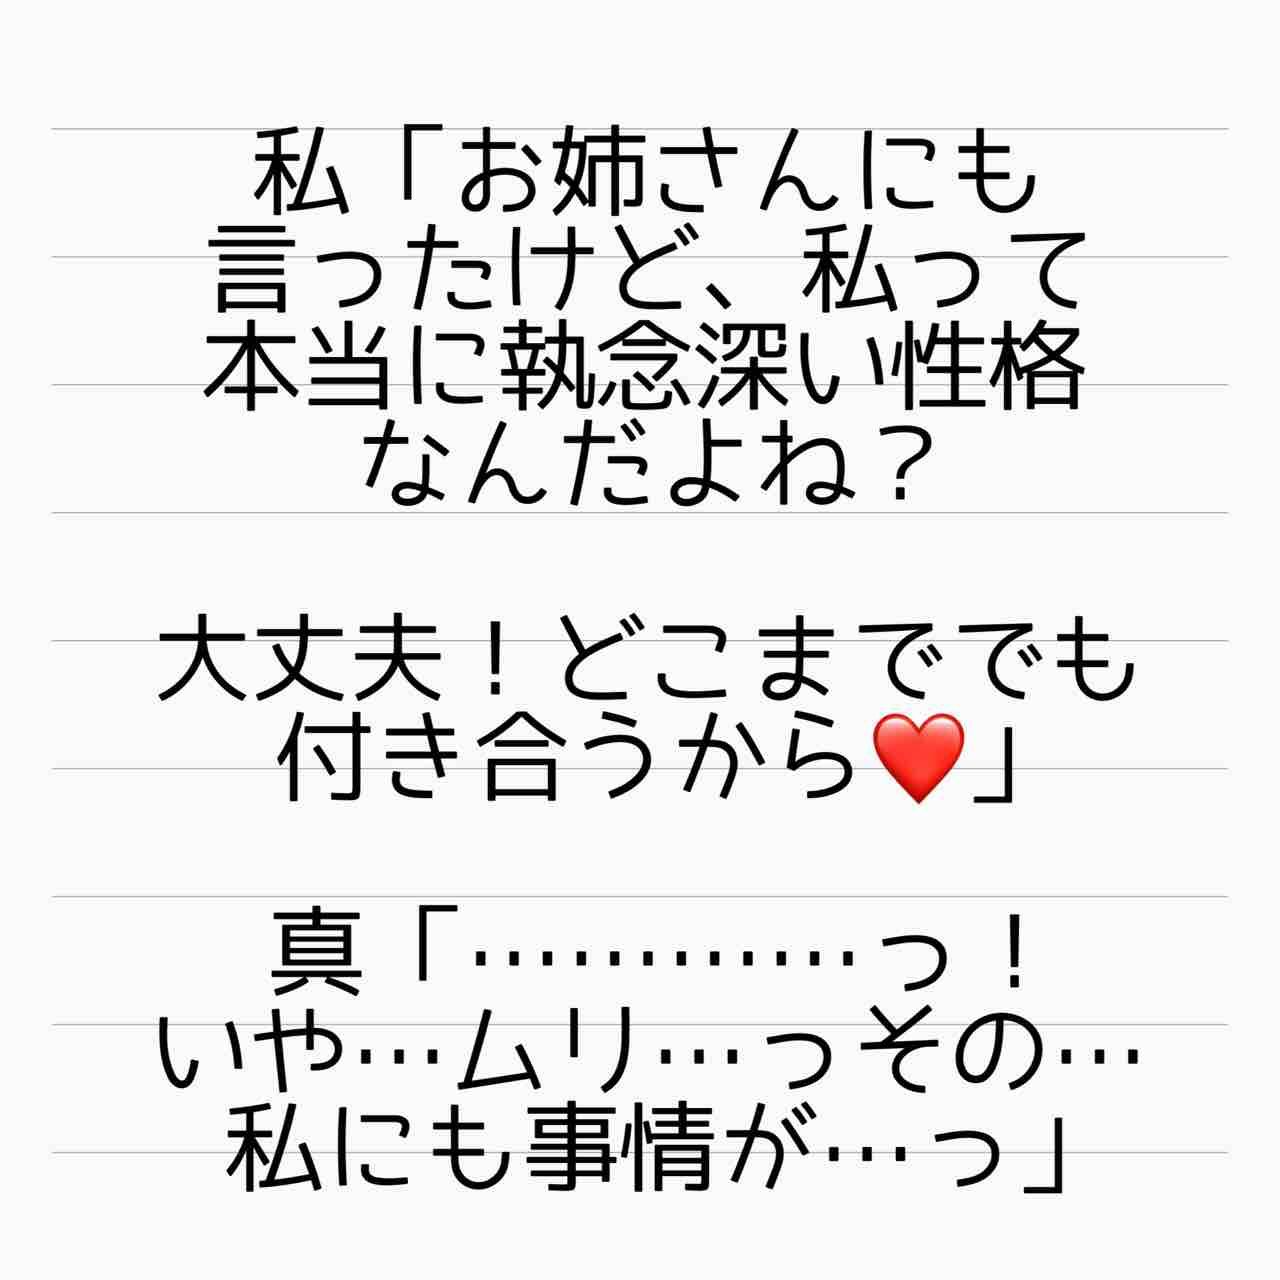 私「お姉さんにも
言ったけど、私って
本当に執念深い性格
なんだよね？
大丈夫！どこまででも
付き合うから❤️」
真「…………っ！
いや…ムリ…っその…
私にも事情が…っ」